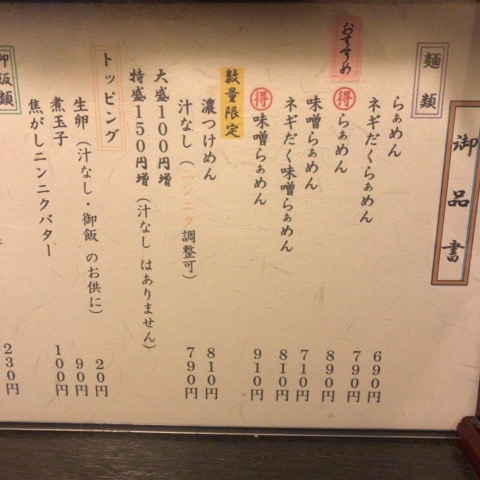 御品書
麺類
らぁめん 690円
ネギだくらぁめん 790円
おすすめ
㊕得らぁめん 890円
味噌らぁめん 710円
ネギだく味噌らぁめん 810円
得味噌らぁめん 910円
数量限定
濃つけめん 810円
汁なし(ニンニク調整可) 790円
大盛100円増
特盛150円増(汁なし はありません)
トッピング
生卵(汁なし・御飯 のお供に) 20円
煮玉子 90円
焦がしニンニクバター 100円
御飯類
230円